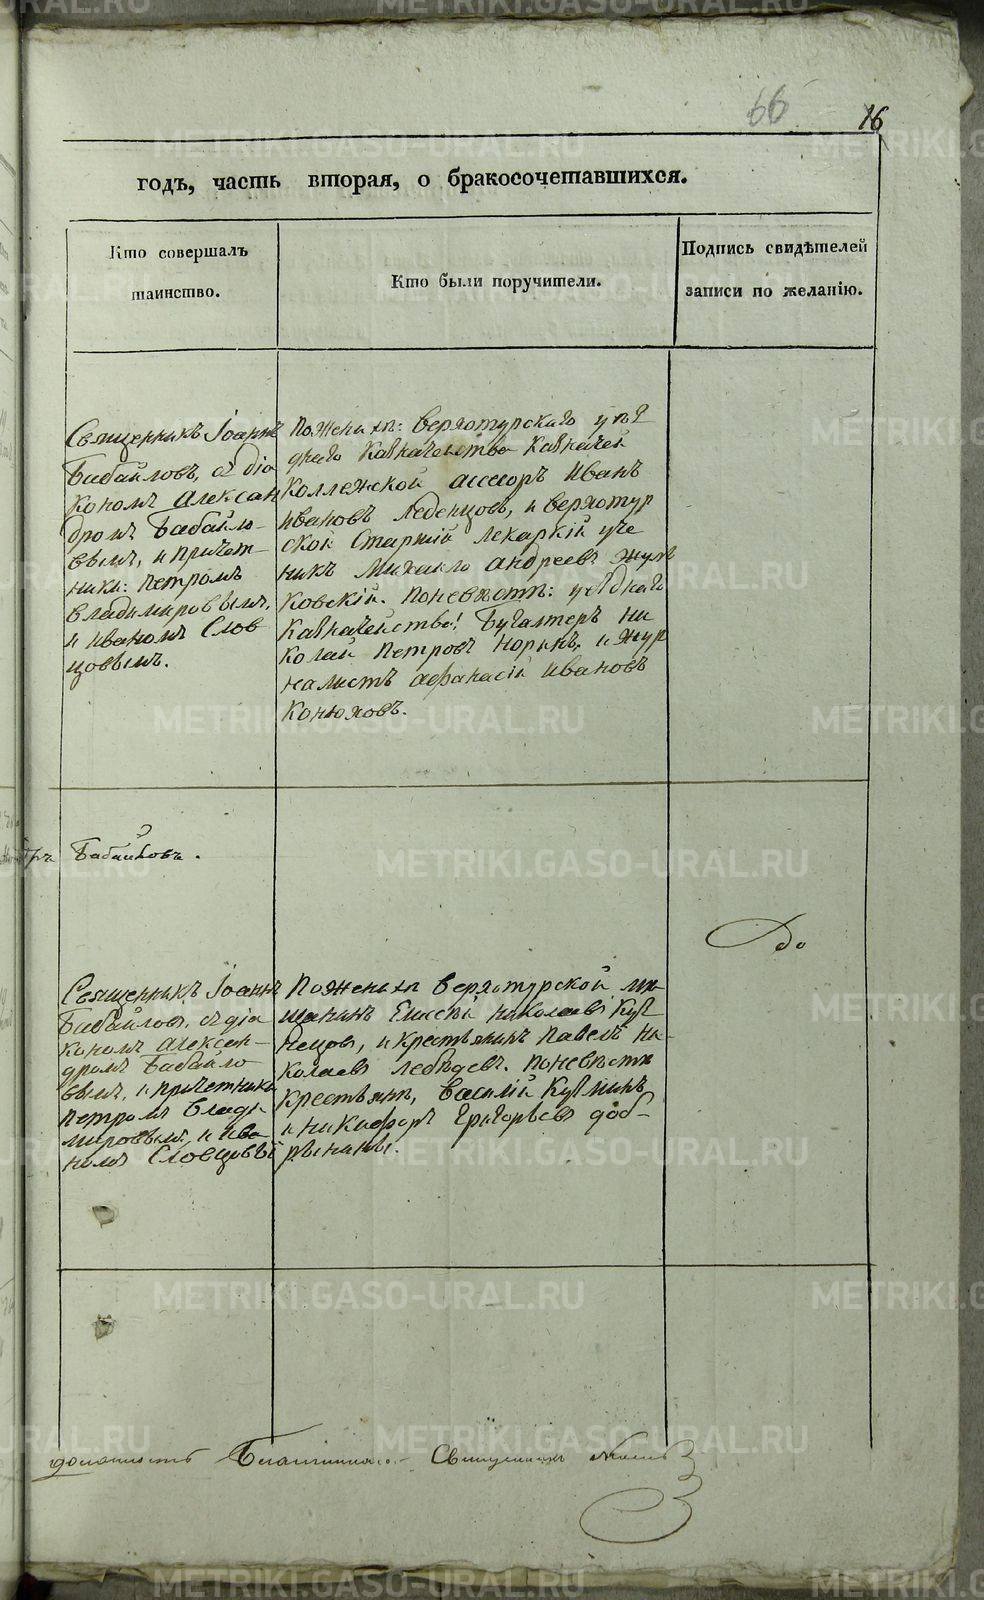 66
16
годъ, часть вторая, о бракосочетавшихся.
Кто совершалъ
таинство.
Кто были поручители.
Подпись свидѣтелей
записи по желанію.
Священникъ Іоаннъ
Бабайловъ, съ діа
кономъ Алексан
дромъ Бабайло-
вымъ, и причет-
ники: Петромъ
Владимировымъ,
и Иваномъ Слов
цовымъ.
Пожених‍ѣ: Верхотурскаго уѣз
днаго Казначейства Казначей
Коллежской ассесоръ Иванъ
Ивановъ Леденцовъ, и верхотур
ской Старшій Лекаркій уче
никъ Михайло Андреевъ Жуж
ковскій. Поневѣстѣ: уѣзднаго
Казначейства: Бугалтеръ Ни
колай Петровъ Норинъ, и жур
налистъ Афанасій Ивановъ
Конюховъ.
Бабайловъ.
До
Священникъ Іоаннъ
Бабайловъ, съ діа
кономъ Алексан-
дромъ Бабайло
вымъ, и причетники
Петромъ Влади-
мировымъ, и Ива
номъ Словцовы
Пожених‍ѣ Верхотурской мѣ
щанинъ Николаевъ Куз
нецовъ, и крестьянинъ Павелъ Ни-
колаевъ Лебѣдевъ. Поневѣстѣ
крестьянѣ, Василій Кузминъ,
и Никифоръ Григорьевъ доб-
рынины.
должность Благочиннаго Священникъ
METRIKI.GASO-URAL.RU